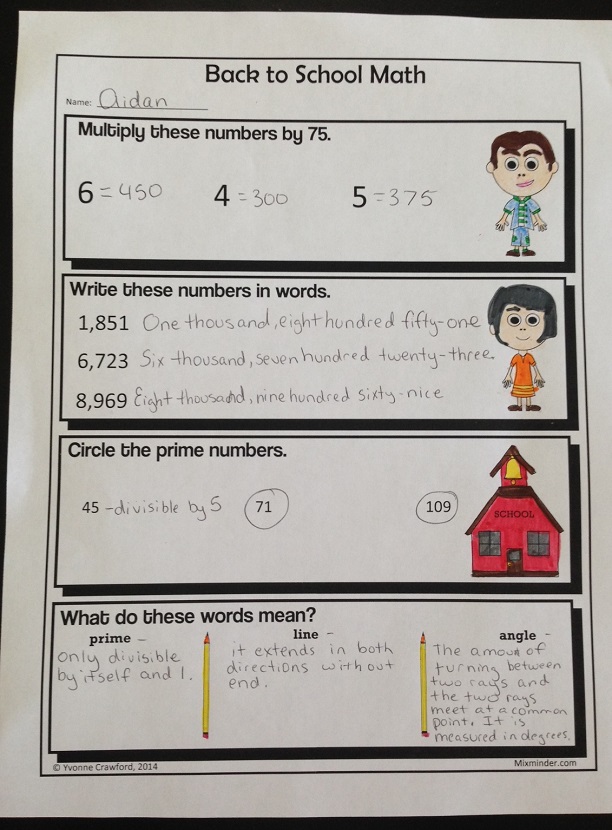 Back to School Math
Name: Aidan
Multiply these numbers by 75.
6 = 450 4 = 300 5 = 375
Write these numbers in words.
1,851 One thousand, eight hundred fifty-one
6,723 Six thousand, seven hundred twenty-three
8,969 Eight thousand, nine hundred sixty-nice
Circle the prime numbers.
45 - divisible by 5 71 109
SCHOOL
What do these words mean?
prime -
only divisible
by itself and 1.
line -
it extends in both
directions without
end.
angle -
The amount of
turning between
two rays and
the two rays
meet at a common
point. It is
measured in degrees.
© Yvonne Crawford, 2014 Mixminder.com